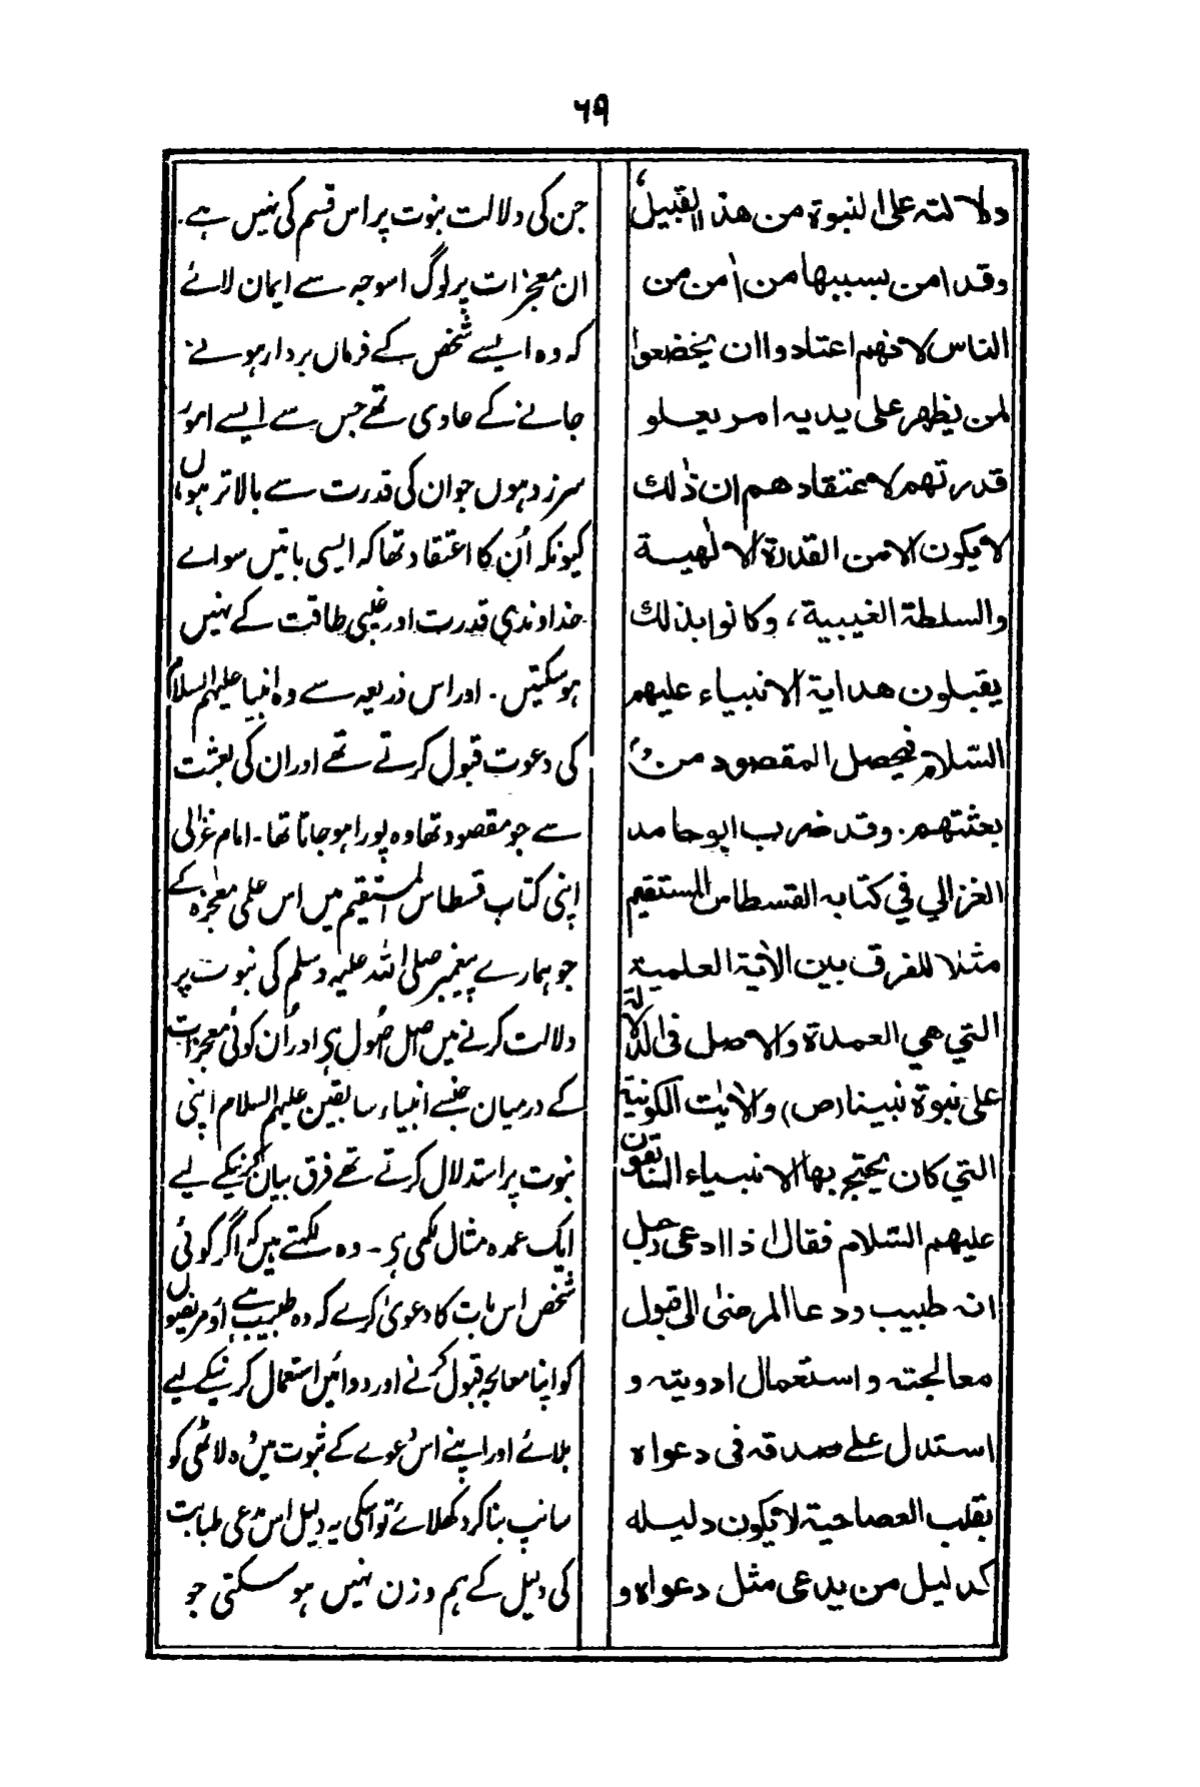 ۶۹
دلالته على النبوة من هذا القبيل،
وقد اٰمن بسببها من اٰمن من
الناس لانهم اعتادوا ان يخضعوا
لمن يظهر على يديه امر يعلو
قدرتهم لاعتقادهم ان ذٰلك
لا يكون الا من القدرة الالٰهية
والسلطة الغيبية، وكانوا بذلك
يقبلون هداية الانبياء عليهم
السّلام فيحصل المقصود من
بعثتهم. وقد ضرب ابو حامد
الغزالي في كتابه القسطاس المستقيم
مثلا للفرق بين الاٰية العلمية
التي هي العمدة والاصل فى الدلالة
على نبوة نبينا (ص) والاٰيٰت الكونية
التي كان يحتج بها الانبياء السابقون
عليهم السّلام فقال اذا ادعى رجل
انه طبيب ودعا المرضىٰ الى قبول
معالجته واستعمال ادويته و
استدل علے صدقه فى دعواه
بقلب العصا حية لا يكون دليله
كدليل من يدعى مثل دعواه و
جن کی دلالت نبوت پر اس قسم کی نہیں ہے۔
ان معجزات پر لوگ اسوجہ سے ایمان لائے
کہ وہ ایسے شخص کے فرماں بردار ہونے
جانے کے عادی تھے جس سے ایسے امور
سرزد ہوں جو ان کی قدرت سے بالاتر ہوں،
کیونکہ اُن کا اعتقاد تھا کہ ایسی باتیں سوائے
خداوندی قدرت اور غیبی طاقت کے نہیں
ہوسکتیں۔ اور اس ذریعہ سے وہ انبیا علیہم السلام
کی دعوت قبول کرتے تھے اور ان کی بعثت
سے جو مقصود تھا وہ پورا ہو جاتا تھا۔ امام غزالی
اپنی کتاب قسطاس المستقیم میں اس علمی معجزہ کے
جو ہمارے پیغمبر صلی اللہ علیہ وسلم کی نبوت پر
دلالت کرنے میں اصل اصول ہی اور اُن کوئی معجزات
کے درمیان جنسے انبیاء سابقین علیہم السلام اپنی
نبوت پر استدلال کرتے تھے فرق بیان کرنیکے لیے
ایک عمدہ مثال لکھی ہی۔ وہ لکھتے ہیں کہ اگر کوئی
شخص اس بات کا دعویٰ کرے کہ وہ طبیب ہے اور مریضوں
کو اپنا معالجہ قبول کرنے اور دوائیں استعمال کرنیکے لیے
بلائے اور اپنے اس دعوے کے ثبوت میں وہ لاٹھی کو
سانپ بنا کر دکھلائے تو اسکی یہ دلیل اس مدعی طبابت
کی دلیل کے ہم وزن نہیں ہو سکتی جو